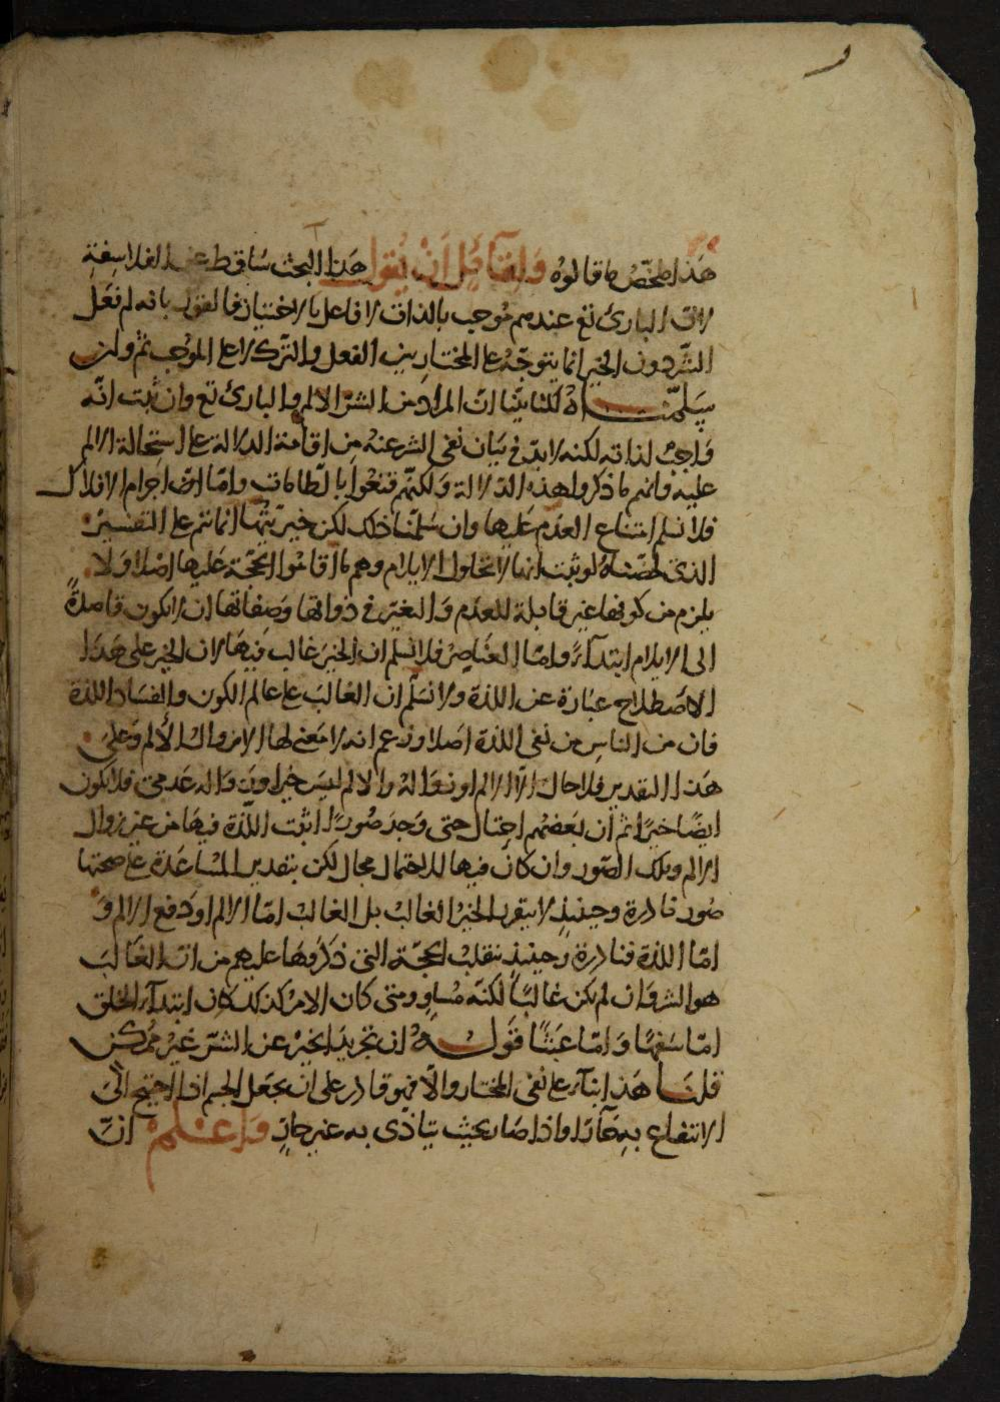 هذا ملخّص ما قالوه ولقائل أن يقول هذا البحث ساقط عن الفلاسفة
لانّ البارئ تع عندهم موجب بالذات لا فاعل بالاختيار فالقول بانه لم فعل
الشر دون الخير انما يتوجّه على المختار بين الفعل والترك لا على الموجب ثم ولئن
سلمناه لكنا بيّنا انّ المراد من الشرّ الالم والبارئ تع وان ثبت انّه
واجب لذاته لكنه لابدّ في بيان نفى الشر عنه من اقامة الدلالة على استحالة الالم
عليه وانهم ما ذكروا هذه الدلالة ولكنهم قنعوا بالطامات وامّا انّ اجرام الافلاك
فلا نسلم امتناع العدم عليها وان سلّمنا ذلك لكن خيريّتها انما تتم على التفسير
الذى لخصناه لو ثبت انها لا تحاول الايلام وهم ما اقاموا الحجّة عليها اصلا ولا
يلزم من كونها غير قابلة للعدم والتغير في ذواتها وصفاتها ان لا يكون قاصدةً
الى الايلام ابتدآءً وامّا العناصر فلا نسلم ان الخير غالب فيها لان الخير على هذا
الاصطلاح عبارة عن اللذة ولا نسلّم ان الغالب على عالم الكون والفساد اللذة
فان من الناس من نفى اللذة اصلا وزعم انه لا معنى لها الا زوال الألم وعلى
هذا التقدير فلا حال الّا الالم او زواله والالم ليس خيرا وزواله عدمى فلا يكون
ايضًا خيرًا ثم ان بعضهم احتال حتى وجد صُورًا اثبت اللذّة فيها من غير زوال
الالم وتلك الصّور وان كان فيها للاحتمال مجال لكن بتقدير المساعدة على صحتها
صور نادرة وحينئذٍ لا يتقرر الخير الغالب بل الغالب امّا الالم او دفع الالم و
امّا اللذة فنادرة وحينئذٍ تنقلب الحجّة التى ذكروها عليهم من انّ الغالب
هو الشر وان لم يكن غالبًا لكنّه مُساوٍ ومتى كان الامر كذلك كان ابتدآء الخلق
امّا سفهًا وامّا عبثًا قوله ان تجريد الخير عن الشرّ غير ممكن
قلنا هذا بنآء على نفى المختار والّا فهو قادر على ان يجعل الجسم اذا احتيج الى
الانتفاع به حَارًّا واذا صار بحيث يتاذى به غير حارٍّ واعلم انّ